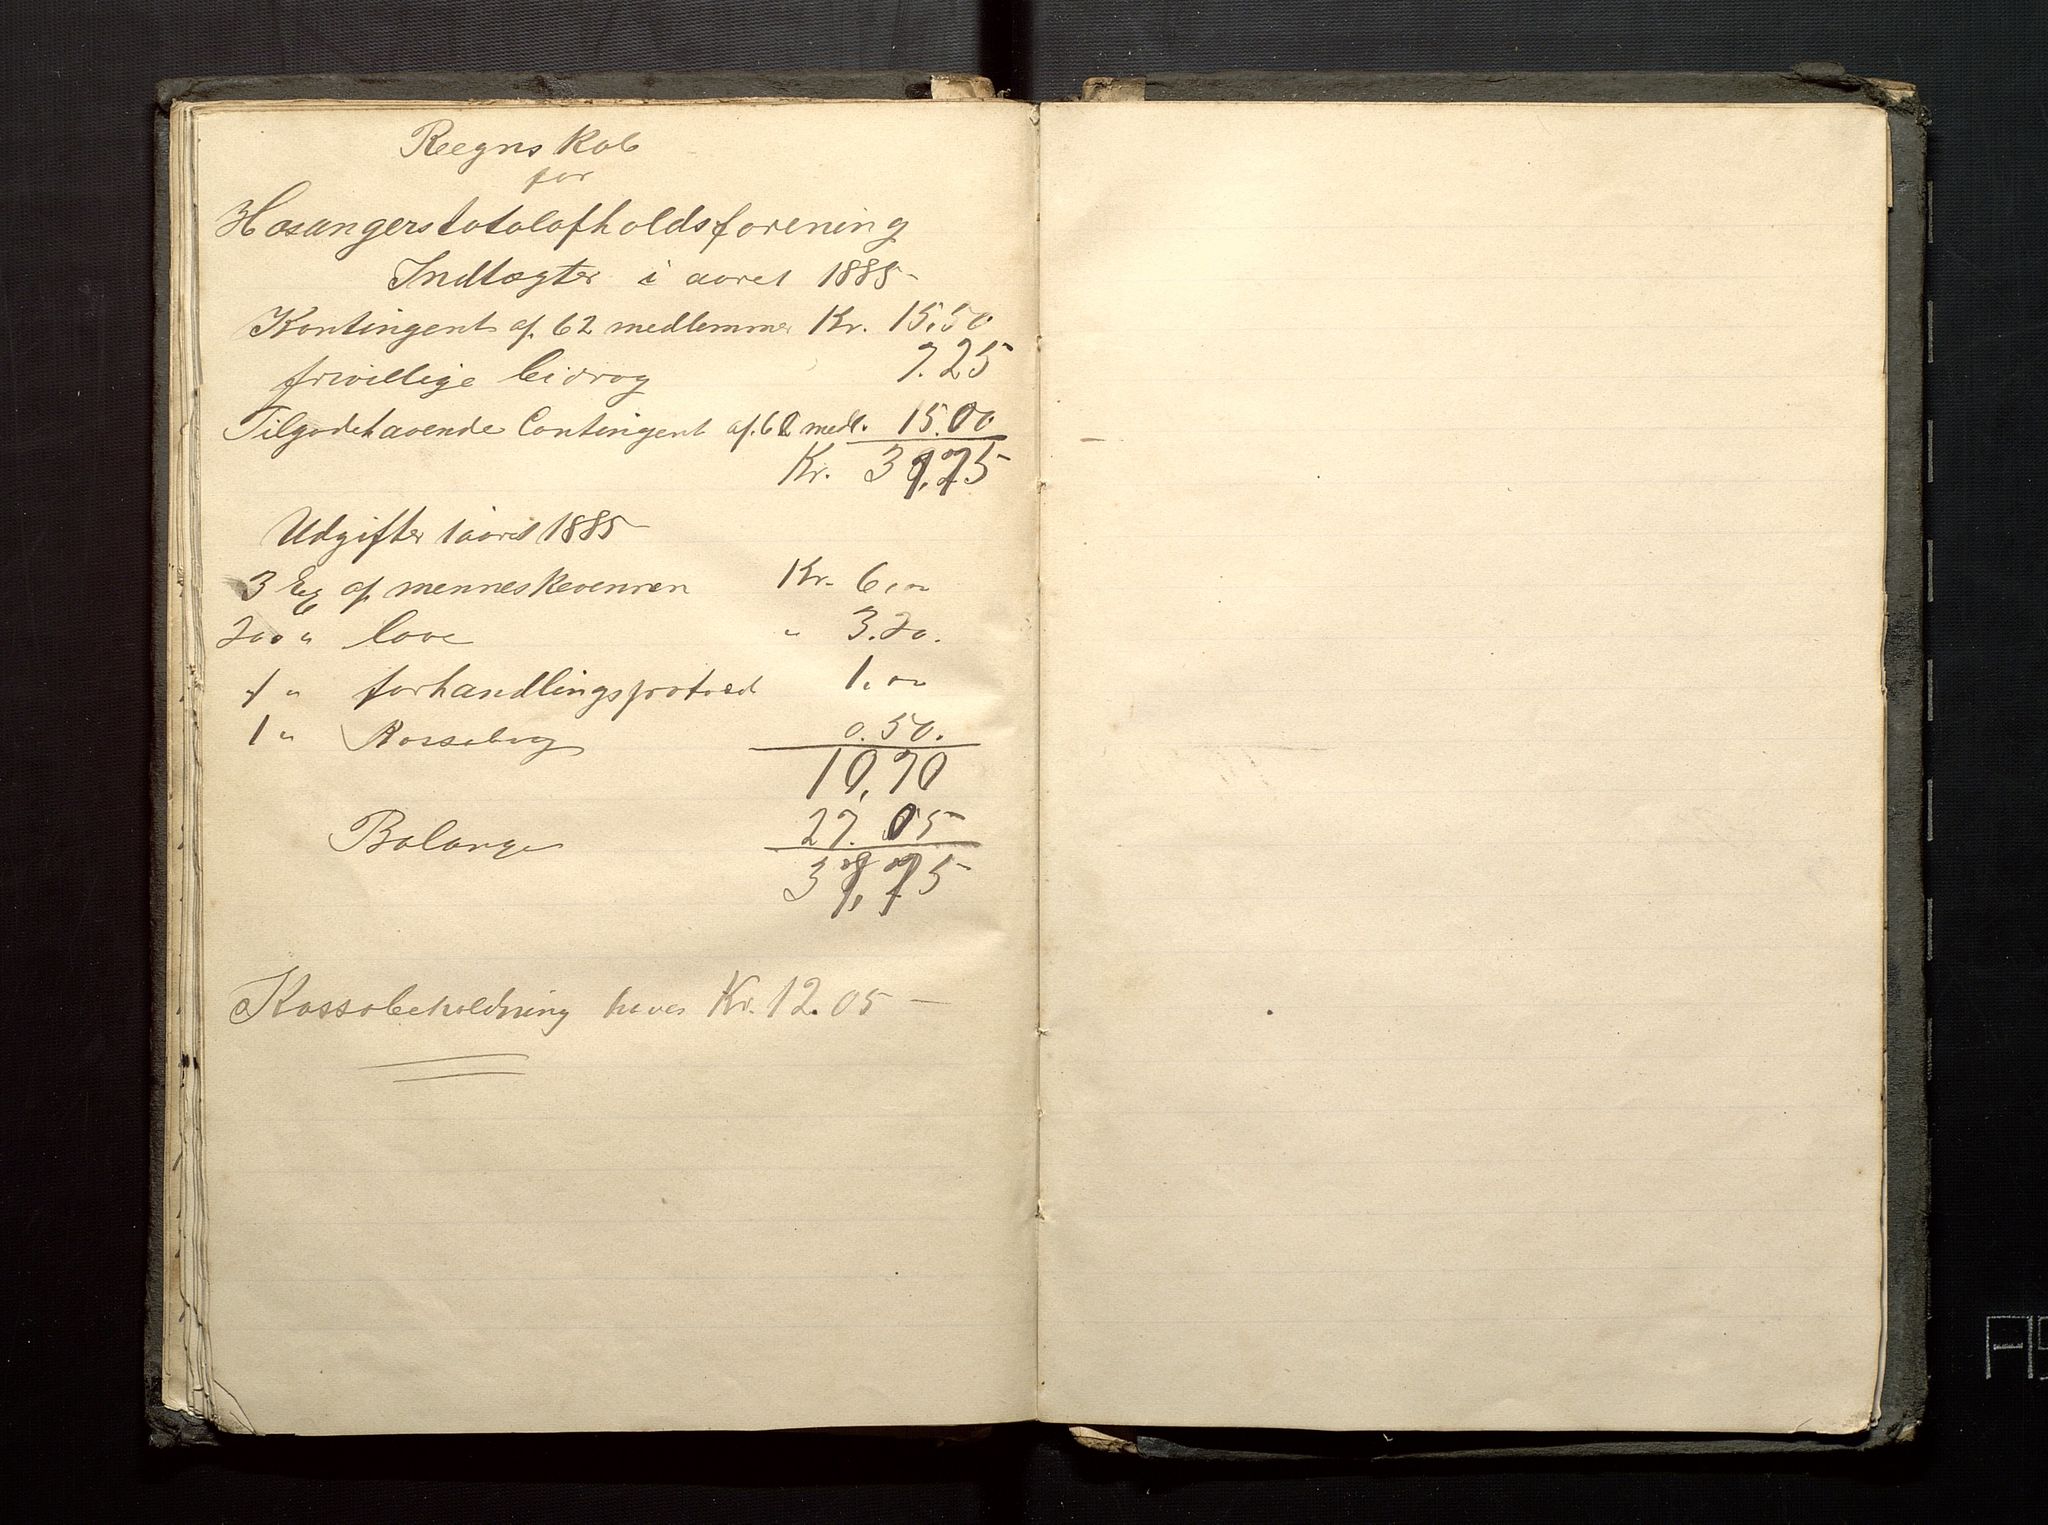 Regnskab
for
Hosangers totalafholdsforening
Indtægter i aaret 1885
Kontingent af 62 medlemmer Kr. 15,50
frivillige bidrag 7.25
Tilgodehavende Contingent af 60 medl. 15.00
Kr. 37,75
Udgifter i aaret 1885
3 Ex af menneskevennen Kr. 6,00
200 " love " 3.20.
1 " forhandlingsprotocol 1.00
1 " Kassabog 0.50.
10,70
Balance 27.05
37,75
Kassabeholdning haves Kr. 12.05